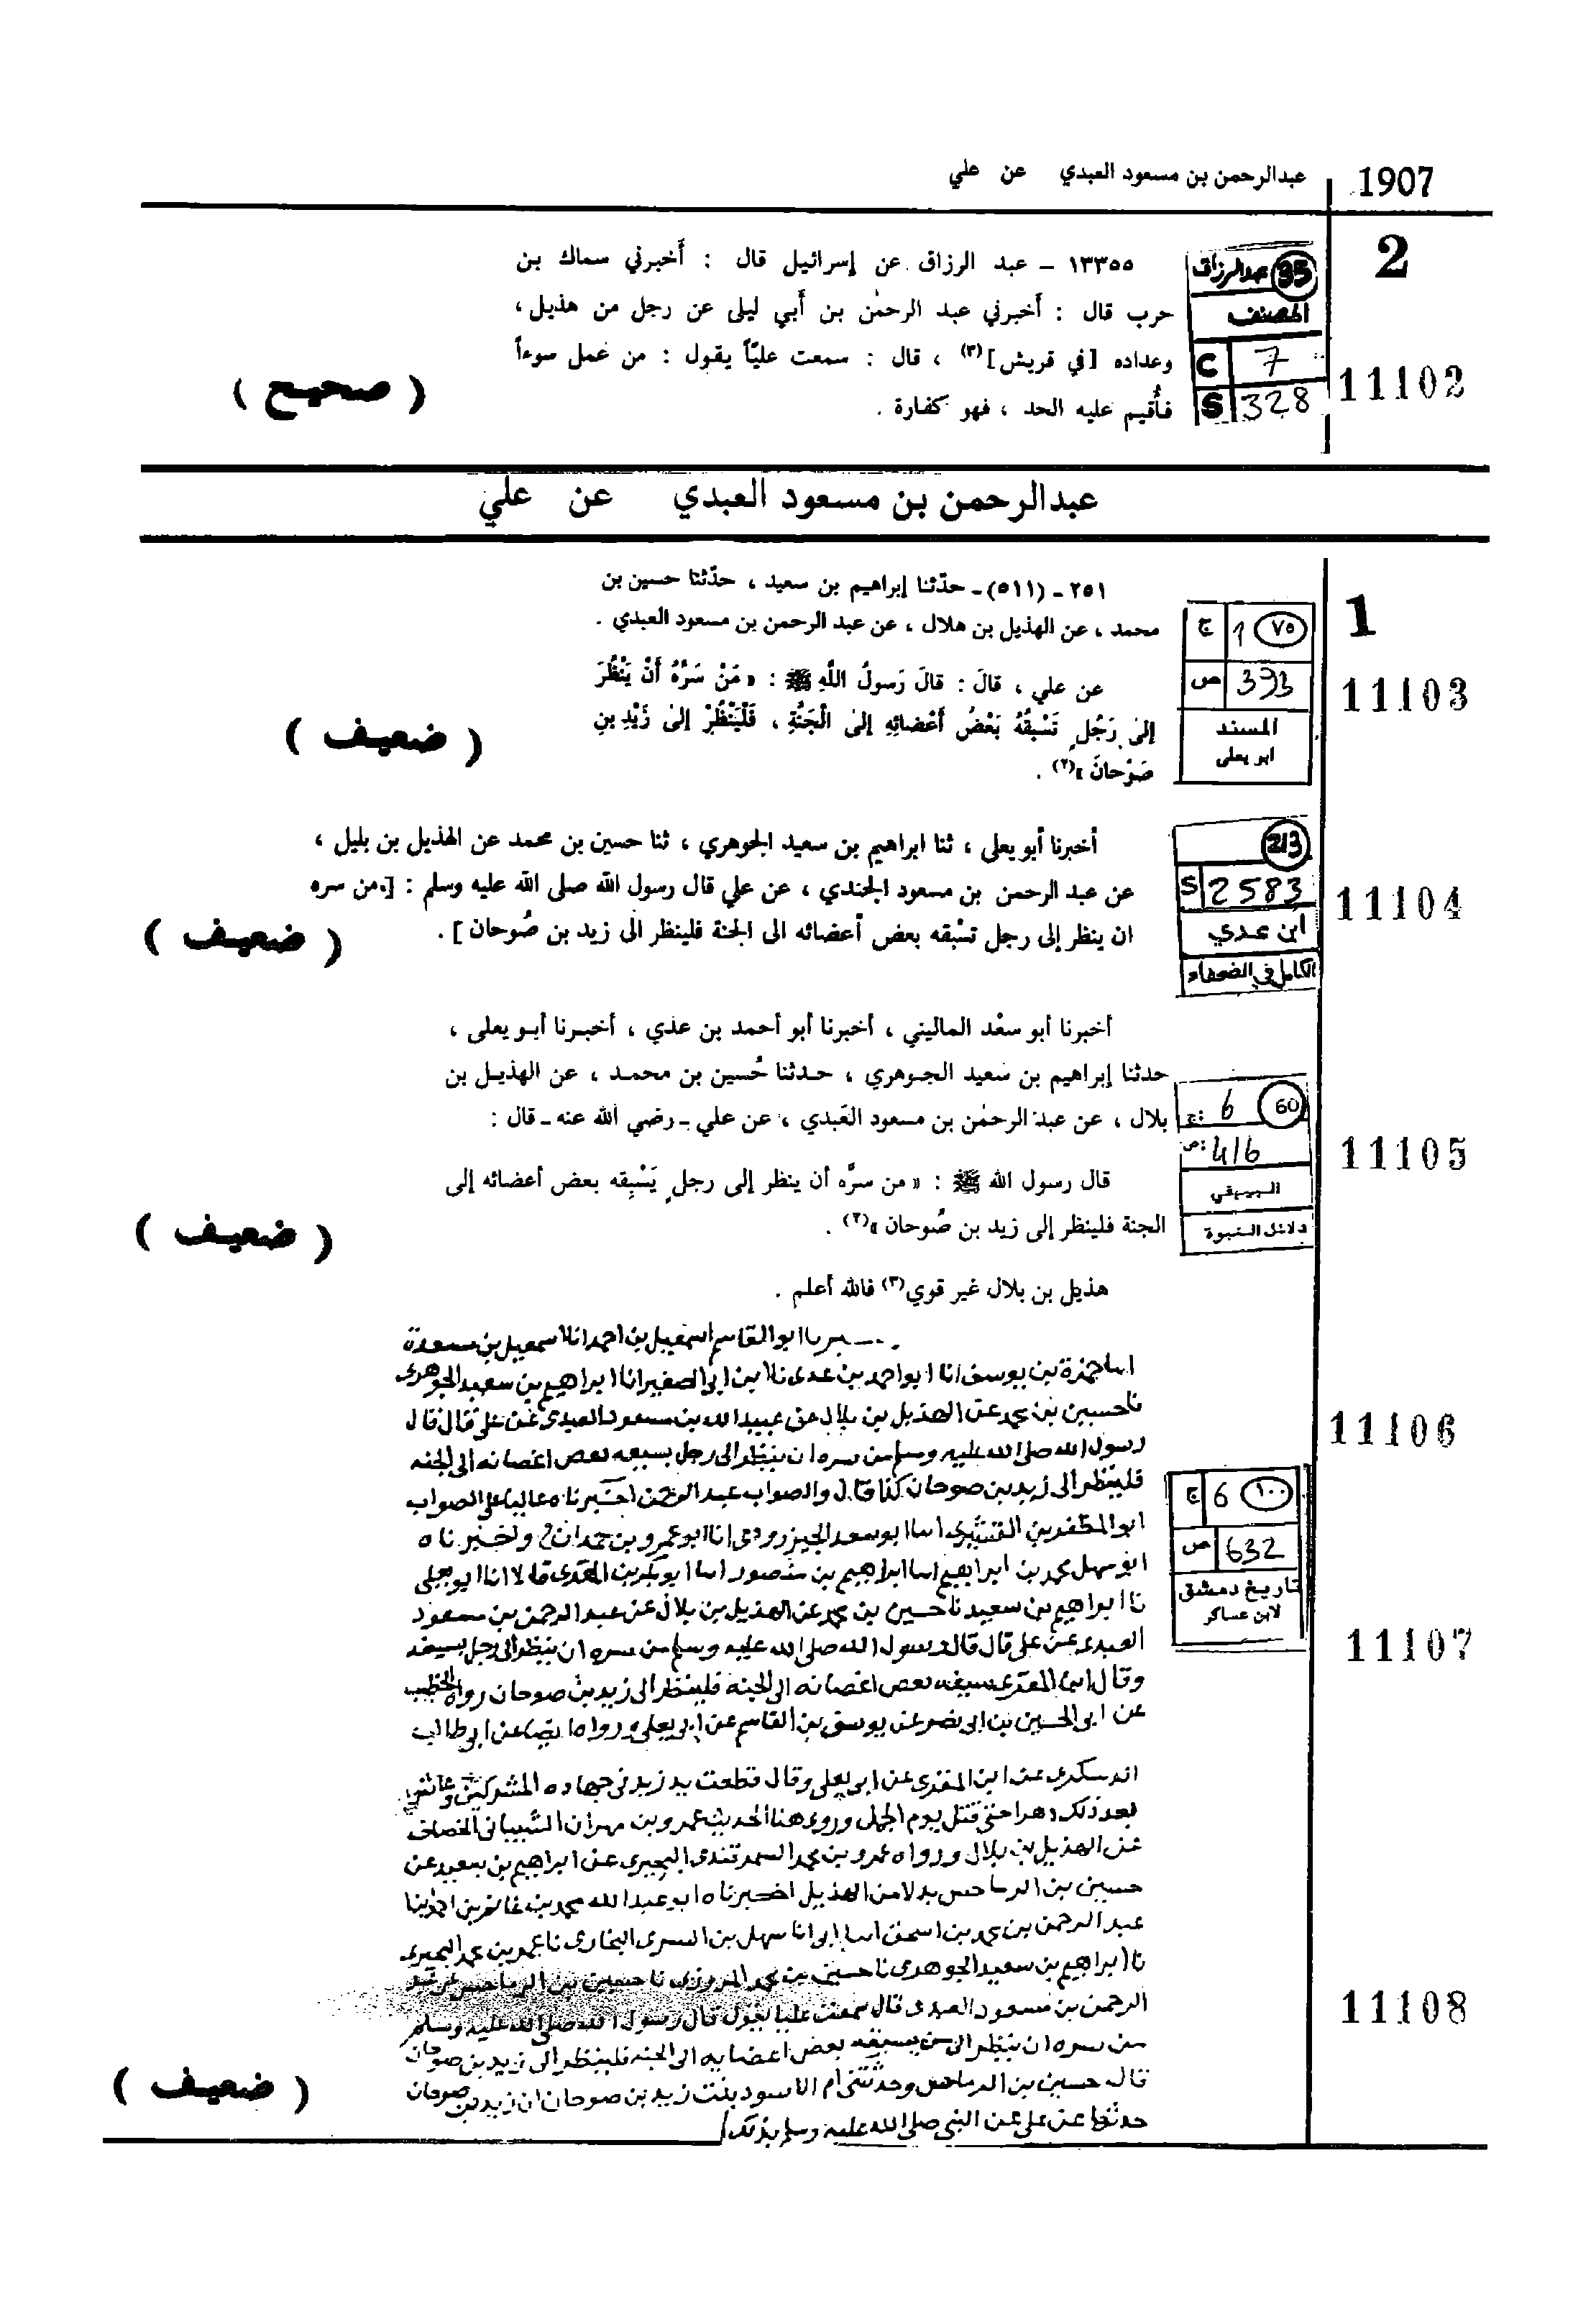 1907
عبدالرحمن بن مسعود العبدي عن علي
2
35 عبدالرزاق
المصنف
C 7
S 328
11102
١٣٣٥٥ – عبد الرزاق عن إسرائيل قال : أخبرني سماك بن
حرب قال : أخبرني عبد الرحمٰن بن أبي ليلى عن رجل من هذيل ،
وعداده [في قريش](٣) ، قال : سمعت عليًّا يقول : من عمل سوءاً
فأُقيم عليه الحد ، فهو كفارة .
( صحيح )
عبدالرحمن بن مسعود العبدي عن علي
1
٧٥ 1 ج
393 ص
المسند
ابو يعلى
11103
٢٥١ - (٥١١) - حدّثنا إبراهيم بن سعيد ، حدّثنا حسين بن
محمد ، عن الهذيل بن هلال ، عن عبد الرحمن بن مسعود العبدي .
عن علي ، قالَ : قالَ رَسولُ اللَّهِ ﷺ : « مَنْ سَرَّهُ أَنْ يَنْظُرَ
إلىٰ رَجُلٍ تَسْبِقُهُ بَعْضُ أَعْضائِهِ إلىٰ الْجَنَّةِ ، فَلْيَنْظُرْ إلىٰ زَيْدِ بنِ
صَوْحانَ »(٢) .
( ضعيف )
213
S 2583
ابن عدي
الكامل في الضعفاء
11104
أخبرنا أبو يعلى ، ثنا ابراهيم بن سعيد الجوهري ، ثنا حسين بن محمد عن الهذيل بن بليل ،
عن عبد الرحمن بن مسعود الجندي ، عن علي قال رسول الله صلى الله عليه وسلم : [ من سره
ان ينظر إلى رجل تسْبقه بعض أعضائه الى الجنة فلينظر الى زيد بن صُوحان ] .
( ضعيف )
60 6 ج:
416 ص:
البيهقي
دلائل النبوة
11105
أخبرنا أبو سعْد الماليني ، أخبرنا أبو أحمد بن عدي ، أخبرنا أبو يعلى ،
حدثنا إبراهيم بن سعيد الجوهري ، حدثنا حُسين بن محمد ، عن الهذيل بن
بلال ، عن عبد الرحمٰن بن مسعود العَبدي ، عن علي ـ رضي الله عنه ـ قال :
قال رسول الله ﷺ : « من سرَّه أن ينظر إلى رجلٍ يَسْبِقه بعض أعضائه إلى
الجنة فلينظر إلى زيد بن صُوحان »(٢) .
( ضعيف )
هذيل بن بلال غير قوي(٣) فالله أعلم .
11106
١٠٠ 6 ج
632 ص
تاريخ دمشق
لابن عساكر
11107
ابو القاسم اسمعيل بن احمد انا اسمعيل بن مسعدة
انا حمزة بن يوسف انا ابو احمد بن عدى نا ابن ابى الصفير انا ابراهيم بن سعيد الجوهرى
نا حسين بن محمد عن الهذيل بن بلال عن عبيد الله بن مسعود العبدى عن على قال قال
رسول الله صلى الله عليه وسلم من سره ان ينظر الى رجل يسبقه بعض اعضائه الى الجنه
فلينظر الى زيد بن صوحان كذا قال والصواب عبد الرحمن اخبرناه عاليا على الصواب
ابو المظفر بن القشيرى انا ابو سعد الجنزرودى انا ابو عمرو بن حمدان ح واخبرناه
ابو سهل محمد بن ابراهيم انا ابراهيم بن منصور انا ابو بكر بن المقرى قالا انا ابو يعلى
نا ابراهيم بن سعيد نا حسين بن محمد عن الهذيل بن بلال عن عبد الرحمن بن مسعود
العبدى عن على قال قال رسول الله صلى الله عليه وسلم من سره ان ينظر الى رجل يسبقه
وقال ابن المقرى سبقه بعض اعضائه الى الجنه فلينظر الى زيد بن صوحان رواه الخطيب
عن ابى الحسين بن ابى نصر عن يوسف بن القاسم عن ابى يعلى ورواه ايضا عن ابى طالب
الدسكرى عن ابن المقرى عن ابى يعلى وقال قطعت يد زيد فى جهاده المشركين وعاش
بعد ذلك دهرا حتى قتل يوم الجمل وروى هذا الحديث عمرو بن مهران الشيبانى الخصاف
عن الهذيل بن بلال ورواه عمرو بن محمد السمرقندى البجيرى عن ابراهيم بن سعيد عن
حسين بن الرماحس بدلا من الهذيل اخبرناه ابو عبد الله محمد بن غانم بن احمد انا
عبد الرحمن بن محمد بن اسحق انا ابى انا سهل بن السرى البخارى نا عمر بن محمد البجيرى
نا ابراهيم بن سعيد الجوهرى نا حسين بن محمد المروزى نا حسين بن الرماحس عن عبد
11108
الرحمن بن مسعود العبدى قال سمعت عليا يقول قال رسول الله صلى الله عليه وسلم
من سره ان ينظر الى من يسبقه بعض اعضايه الى الجنه فلينظر الى زيد بن صوحان
قال حسين بن الرماحس وحدثتنى ام الاسود بنت زيد بن صوحان ان زيد بن صوحان
حدثها عن على عن النبى صلى الله عليه وسلم بذلك
( ضعيف )